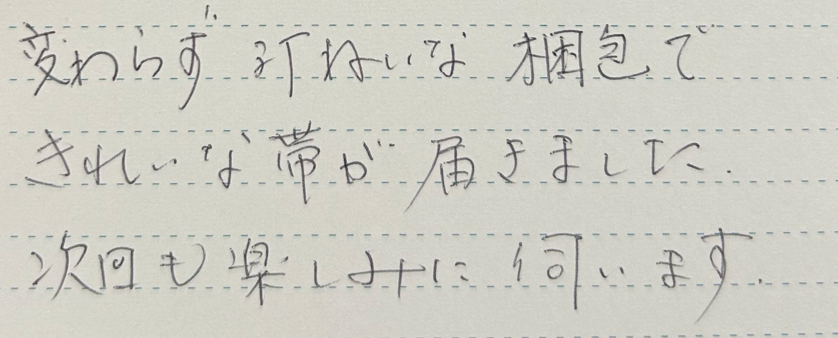 変わらず訂ねいな梱包で
きれいな帯が届きました.
次回も楽しみに伺います.